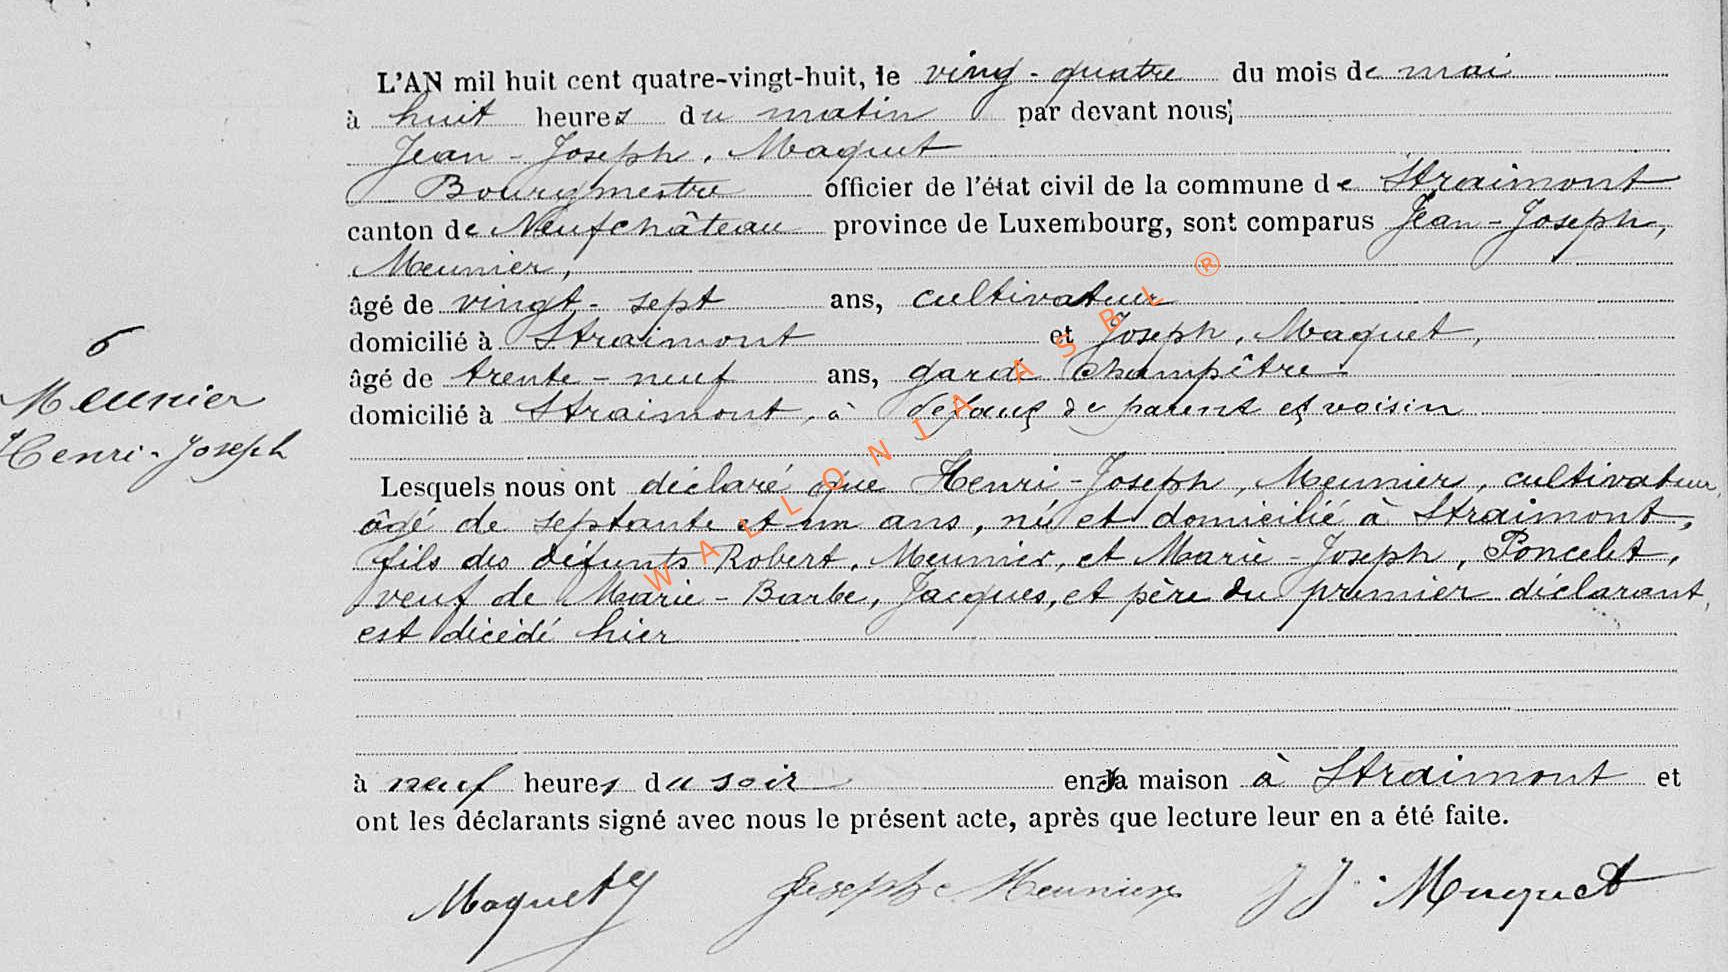 L'AN mil huit cent quatre-vingt-huit, le vingt-quatre du mois de mai
à huit heures du matin par devant nous,
Jean-Joseph, Maquet
Bourgmestre officier de l'état civil de la commune de Straimont
canton de Neufchâteau province de Luxembourg, sont comparus Jean-Joseph,
Meunier,
âgé de vingt-sept ans, cultivateur
domicilié à Straimont et Joseph, Maquet,
âgé de trente-neuf ans, garde champêtre
domicilié à Straimont, à défaut de parent et voisin
6
Meunier
Henri-Joseph
Lesquels nous ont déclaré que Henri-Joseph, Meunier, cultivateur,
âgé de septante et un ans, né et domicilié à Straimont,
fils des défunts Robert, Meunier, et Marie-Joseph, Poncelet,
veuf de Marie-Barbe, Jacques, et père du premier déclarant,
est décédé hier
à neuf heures du soir en sa maison à Straimont et
ont les déclarants signé avec nous le présent acte, après que lecture leur en a été faite.
Maquet J Joseph Meunier J J. Maquet
WALLONIA ASBL ®